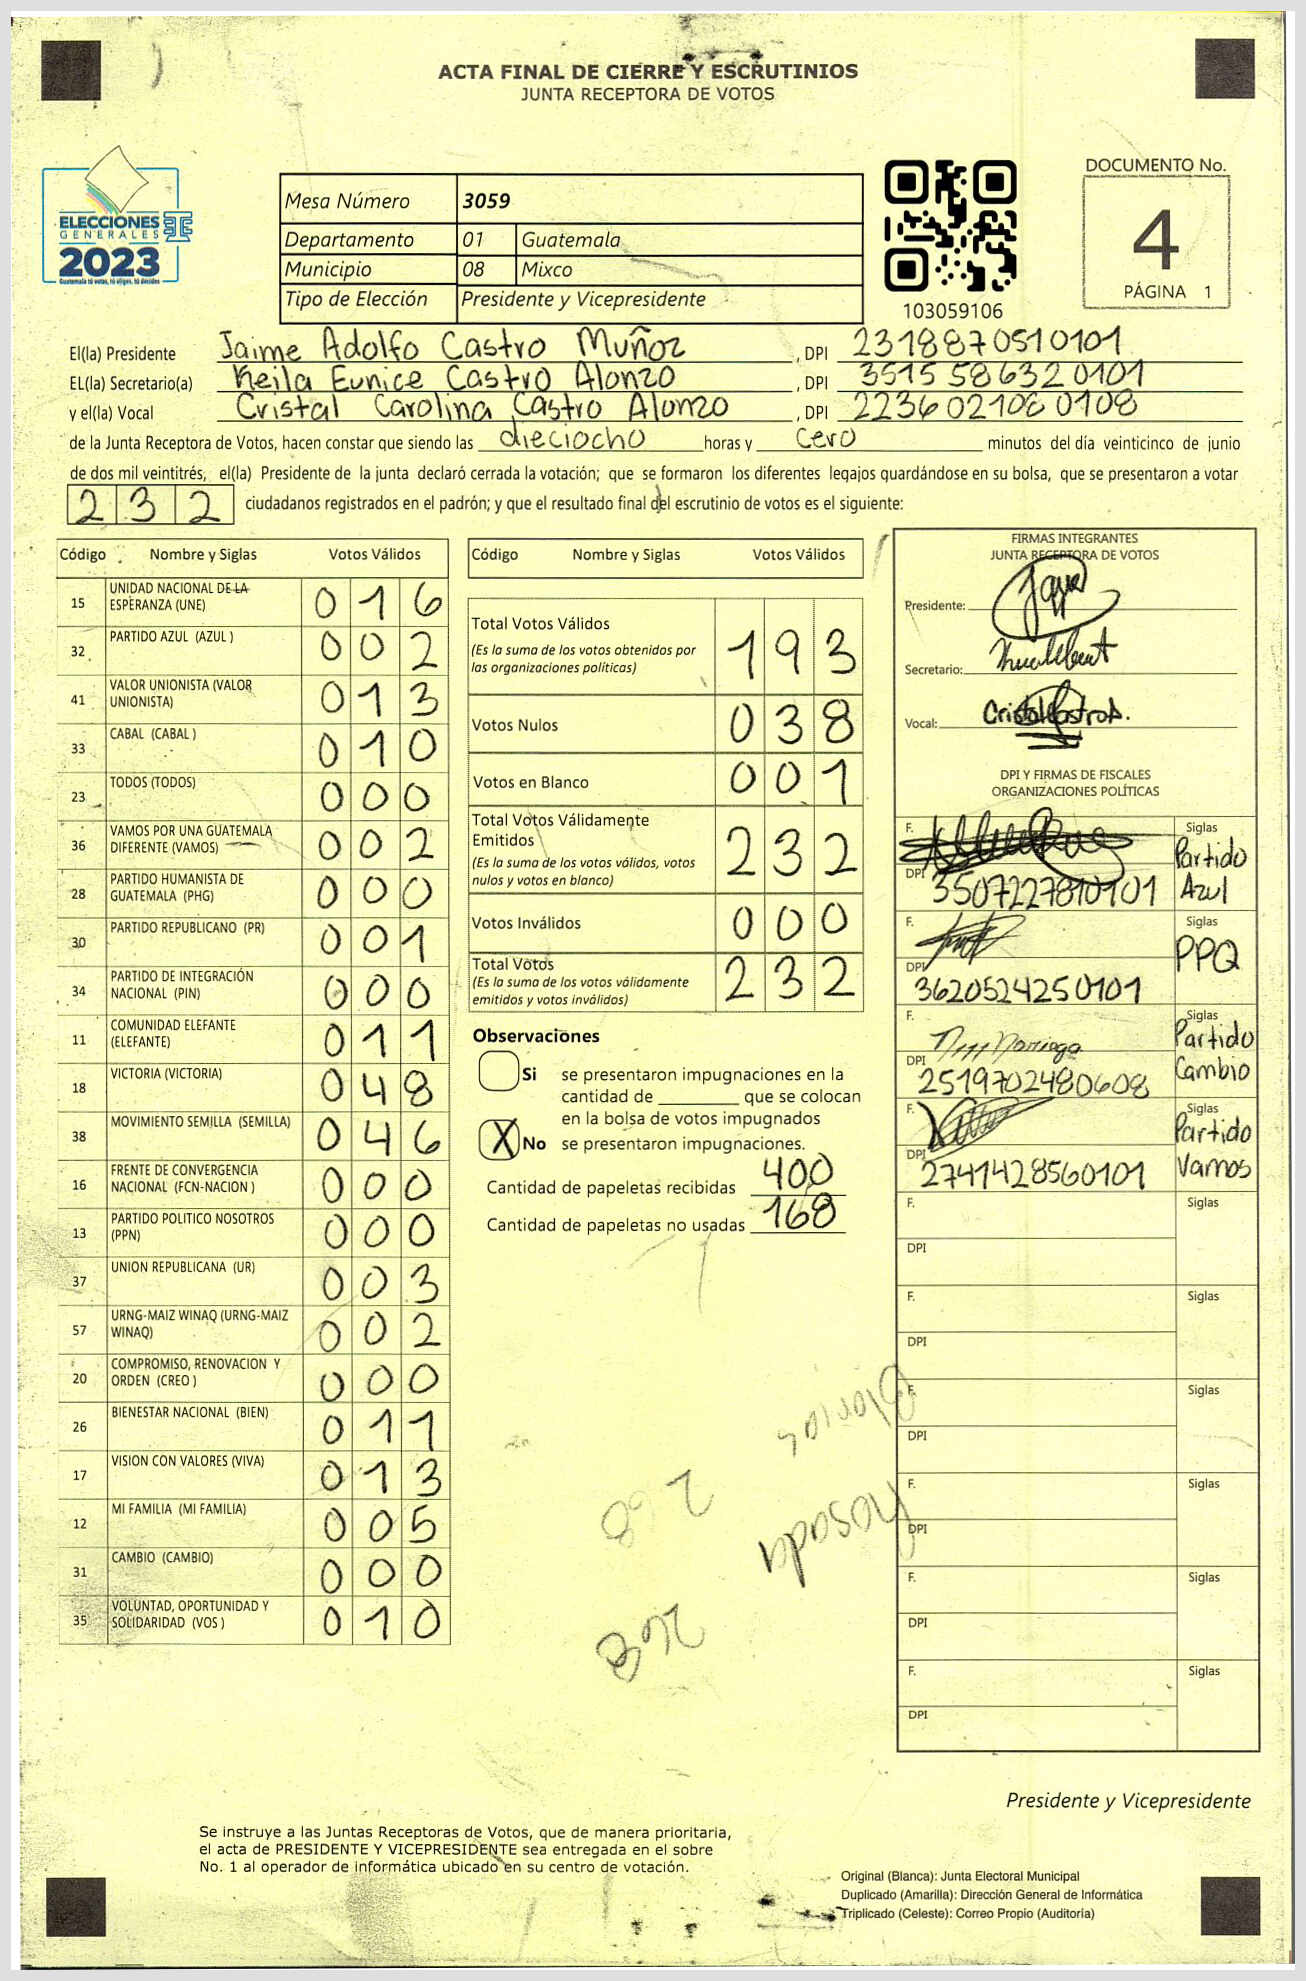 ACTA FINAL DE CIERRE Y ESCRUTINIOS
JUNTA RECEPTORA DE VOTOS
ELECCIONES
GENERALES
2023
Guatemala tú votas, tú eliges, tú decides
Mesa Número 3059
Departamento 01 Guatemala
Municipio 08 Mixco
Tipo de Elección Presidente y Vicepresidente
103059106
DOCUMENTO No.
4
PÁGINA 1
El(la) Presidente Jaime Adolfo Castro Muñoz , DPI 2318870510101
EL(la) Secretario(a) Keila Eunice Castro Alonzo , DPI 3515586320101
y el(la) Vocal Cristal Carolina Castro Alonzo , DPI 2236021080108
de la Junta Receptora de Votos, hacen constar que siendo las dieciocho horas y cero minutos del día veinticinco de junio
de dos mil veintitrés, el(la) Presidente de la junta declaró cerrada la votación; que se formaron los diferentes legajos guardándose en su bolsa, que se presentaron a votar
232 ciudadanos registrados en el padrón; y que el resultado final del escrutinio de votos es el siguiente:
Código Nombre y Siglas Votos Válidos
15 UNIDAD NACIONAL DE LA ESPERANZA (UNE) 016
32 PARTIDO AZUL (AZUL ) 002
41 VALOR UNIONISTA (VALOR UNIONISTA) 013
33 CABAL (CABAL ) 010
23 TODOS (TODOS) 000
36 VAMOS POR UNA GUATEMALA DIFERENTE (VAMOS) 002
28 PARTIDO HUMANISTA DE GUATEMALA (PHG) 000
30 PARTIDO REPUBLICANO (PR) 001
34 PARTIDO DE INTEGRACIÓN NACIONAL (PIN) 000
11 COMUNIDAD ELEFANTE (ELEFANTE) 011
18 VICTORIA (VICTORIA) 048
38 MOVIMIENTO SEMILLA (SEMILLA) 046
16 FRENTE DE CONVERGENCIA NACIONAL (FCN-NACION ) 000
13 PARTIDO POLITICO NOSOTROS (PPN) 000
37 UNION REPUBLICANA (UR) 003
57 URNG-MAIZ WINAQ (URNG-MAIZ WINAQ) 002
20 COMPROMISO, RENOVACION Y ORDEN (CREO ) 000
26 BIENESTAR NACIONAL (BIEN) 011
17 VISION CON VALORES (VIVA) 013
12 MI FAMILIA (MI FAMILIA) 005
31 CAMBIO (CAMBIO) 000
35 VOLUNTAD, OPORTUNIDAD Y SOLIDARIDAD (VOS ) 010
Código Nombre y Siglas Votos Válidos
Total Votos Válidos 193
(Es la suma de los votos obtenidos por
las organizaciones políticas)
Votos Nulos 038
Votos en Blanco 001
Total Votos Válidamente
Emitidos 232
(Es la suma de los votos válidos, votos
nulos y votos en blanco)
Votos Inválidos 000
Total Votos 232
(Es la suma de los votos válidamente
emitidos y votos inválidos)
Observaciones
Si se presentaron impugnaciones en la
cantidad de ________ que se colocan
en la bolsa de votos impugnados
X No se presentaron impugnaciones.
Cantidad de papeletas recibidas 400
Cantidad de papeletas no usadas 168
Blancos
268
Rosada
268
FIRMAS INTEGRANTES
JUNTA RECEPTORA DE VOTOS
Presidente:
Secretario:
Vocal: Cristal Castro A.
DPI Y FIRMAS DE FISCALES
ORGANIZACIONES POLÍTICAS
F. Siglas Partido Azul
DPI 3507227810101
F. Siglas PPQ
DPI 3620524250101
F. Noriega Siglas Partido Cambio
DPI 2519702480608
F. Siglas Partido Vamos
DPI 2741428560101
F. Siglas
DPI
F. Siglas
DPI
F. Siglas
DPI
F. Siglas
DPI
F. Siglas
DPI
F. Siglas
DPI
Presidente y Vicepresidente
Se instruye a las Juntas Receptoras de Votos, que de manera prioritaria,
el acta de PRESIDENTE Y VICEPRESIDENTE sea entregada en el sobre
No. 1 al operador de informática ubicado en su centro de votación.
Original (Blanca): Junta Electoral Municipal
Duplicado (Amarilla): Dirección General de Informática
Triplicado (Celeste): Correo Propio (Auditoría)